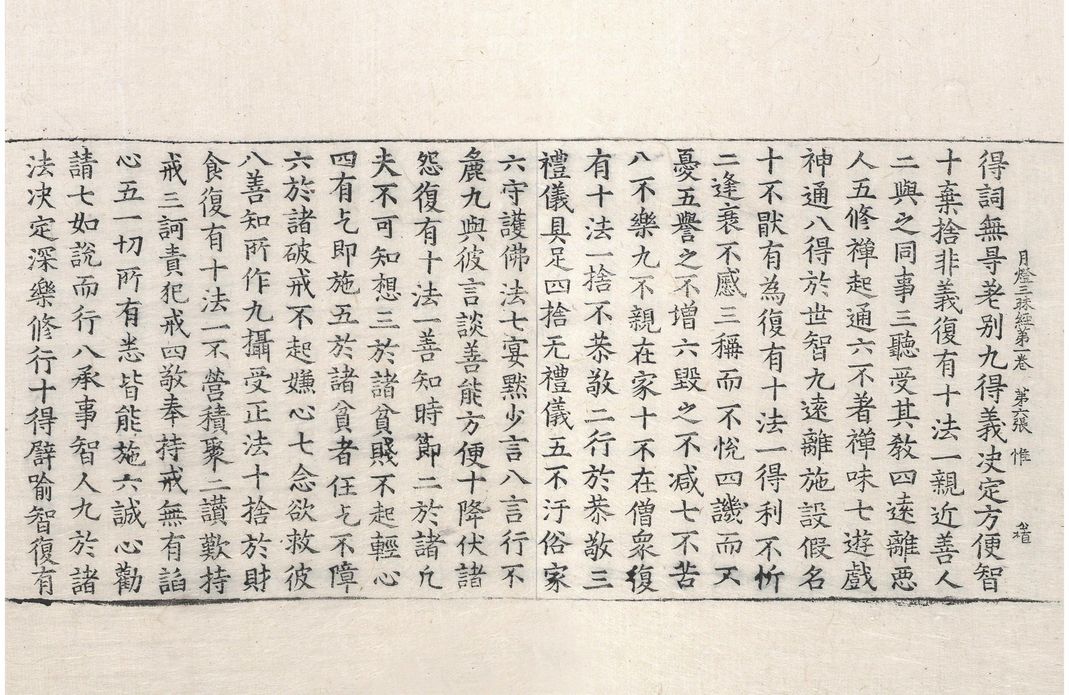 月燈三昧經第 卷 第六張 惟
得詞無㝵差別九得義决定方便智
十棄捨非義復有十法一親近善人
二與之同事三聽受其教四遠離惡
人五修禪起通六不著禪味七遊戲
神通八得於世智九遠離施設假名
十不猒有為復有十法一得利不忻
二逢衰不慼三稱而不恱四譏而不
憂五譽之不增六毀之不减七不苦
八不樂九不親在家十不在僧衆復
有十法一捨不恭敬二行於恭敬三
禮儀具足四捨无禮儀五不汙俗家
六守護佛法七宴默少言八言行不
麁九與彼言談善能方便十降伏諸
怨復有十法一善知時節二於諸凢
夫不可知想三於諸貧賤不起輕心
四有乞即施五於諸貧者任乞不障
六於諸破戒不起嫌心七念欲救彼
八善知所作九攝受正法十捨於財
食復有十法一不營積聚二讃歎持
戒三訶責犯戒四敬奉持戒無有諂
心五一切所有悉皆能施六誠心勸
請七如說而行八承事智人九於諸
法决定深樂修行十得譬喻智復有